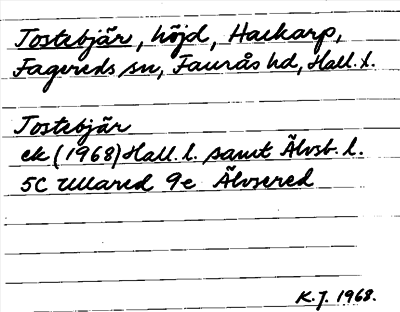 Tostebjär, höjd, Hackarp,
Fagereds sn, Faurås hd, Hall. l.
Tostebjär
ek (1968) Hall. l. samt Älvsb. l.
5C Ullared 9e Älvsered
K.J. 1968.